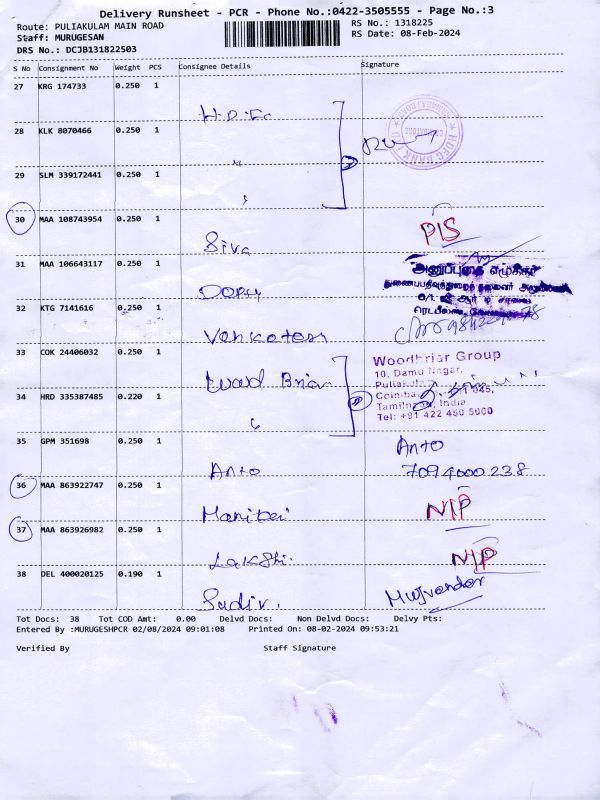 Delivery Runsheet - PCR - Phone No.:0422-3505555 - Page No.:3
Route: PULIAKULAM MAIN ROAD RS No.: 1318225
Staff: MURUGESAN RS Date: 08-Feb-2024
DRS No.: DCJB131822503
S No Consignment No Weight PCS Consignee Details Signature
27 KRG 174733 0.250 1
H.D.F.C
28 KLK 8070466 0.250 1
"
29 SLM 339172441 0.250 1
30 MAA 108743954 0.250 1
Siva
31 MAA 106643117 0.250 1
அனுப்புகை எழுத்தர்
32 KTG 7141616 0.250 1
Venkatesh
33 COK 24406032 0.250 1
Woodbriar Group
10, Damu Nagar,
34 HRD 335387485 0.220 1
Tamilnadu, India
Tel: +91 422 450 5000
35 GPM 351698 0.250 1
Anto Anto
7094000238
36 MAA 863922747 0.250 1
NIP
37 MAA 863926982 0.250 1
NIP
38 DEL 400020125 0.190 1
Tot Docs: 38 Tot COD Amt: 0.00 Delvd Docs: Non Delvd Docs: Delvy Pts:
Entered By :MURUGESHPCR 02/08/2024 09:01:08 Printed On: 08-02-2024 09:53:21
Verified By Staff Signature